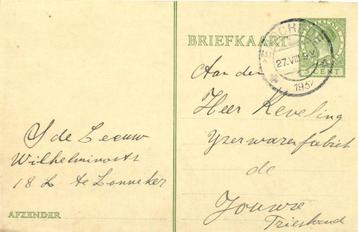 BRIEFKAART
ENSCHEDE
27.VII
193
CENT
Aan den
Heer Keveling
Yzerwarenfabriek
de
Jouwre
Friesland
S de Leeuw
Wilhelminastr
18 L te Lonneker
AFZENDER